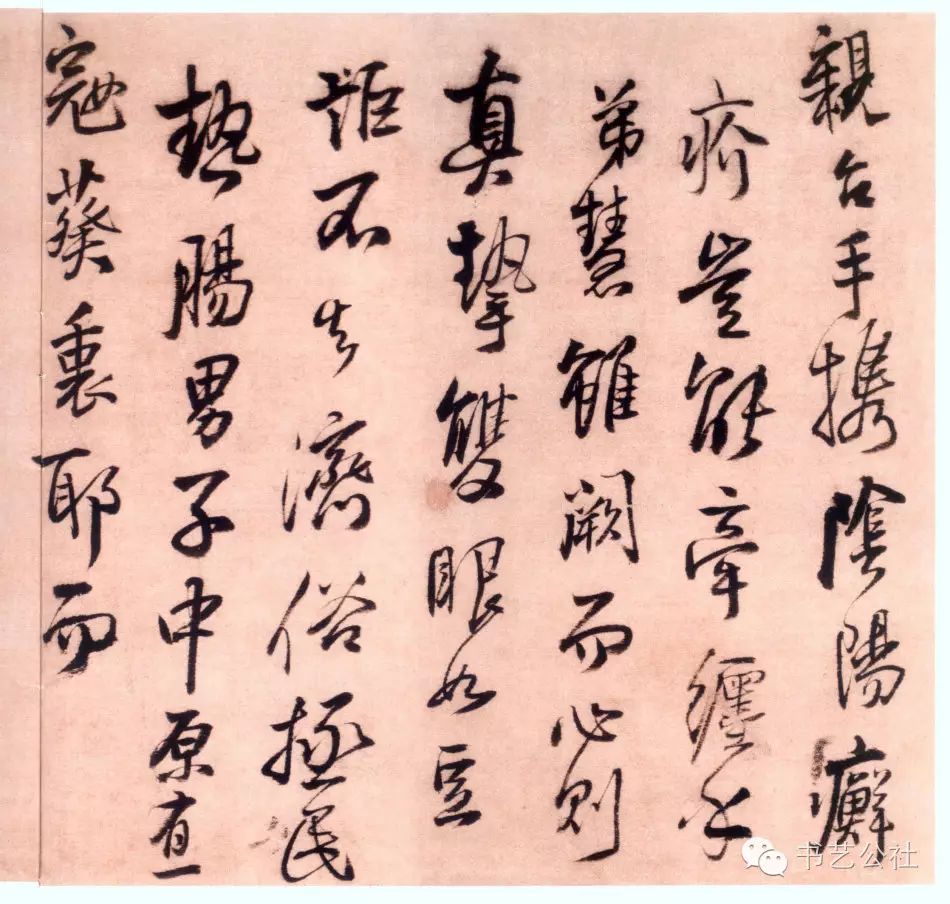 親台手携陰陽癬
疥豈能牽纏乎
弟慧雖闕而心則
真摯雙眼如豆
詎不知濟俗拯民
熱腸男子中原有一
寇葵裏耶而
书艺公社